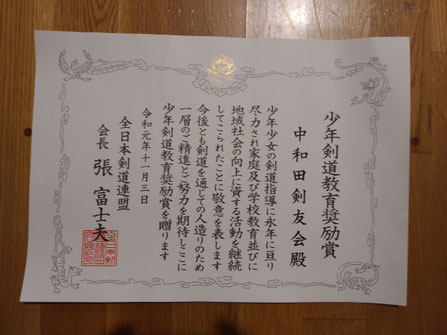 少年剣道教育奨励賞
中和田剣友会殿
少年少女の剣道指導に永年に亘り
尽力され家庭及び学校教育並びに
地域社会の向上に資する活動を継続
してこられたことに敬意を表します
今後とも剣道を通じての人造りのため
一層のご精進とご努力を期待しここに
少年剣道教育奨励賞を贈ります
令和元年十一月三日
全日本剣道連盟
会長 張富士夫